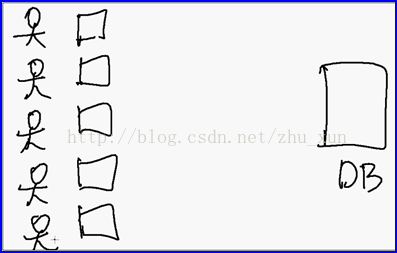 http://blog.csdn.net/zhu_xun
DB